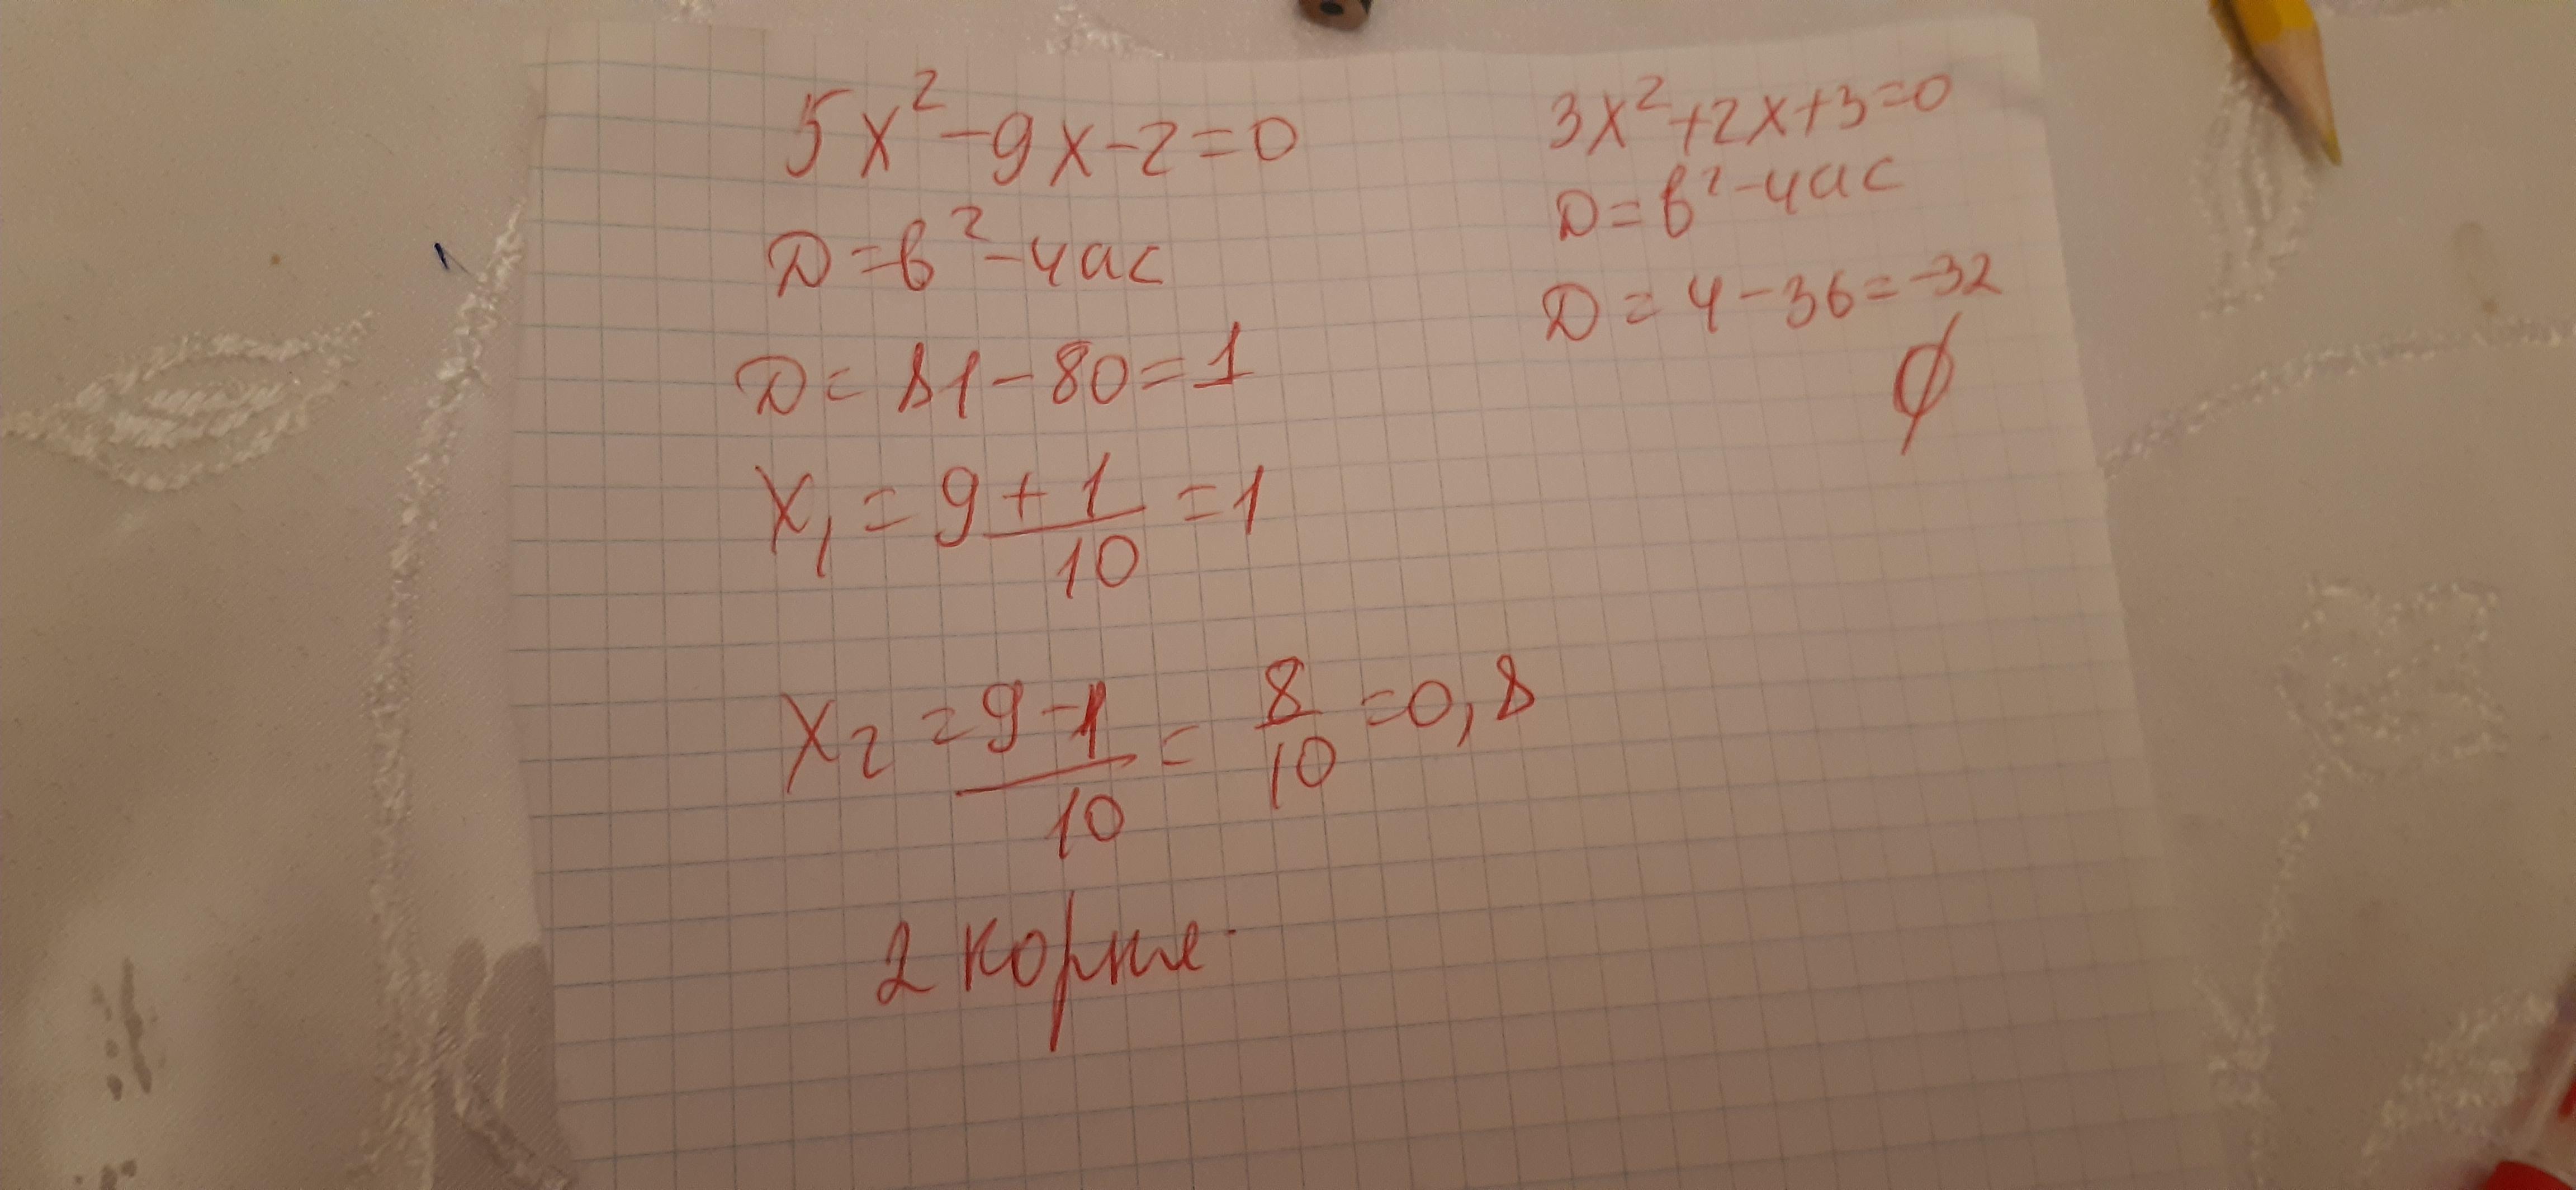 5x²-9x-2=0
D=b²-4ac
D=81-80=1
x₁=9+1/10=1
x₂=9-1/10=8/10=0,8
2 корня
3x²+2x+3=0
D=b²-4ac
D=4-36=-32
∅